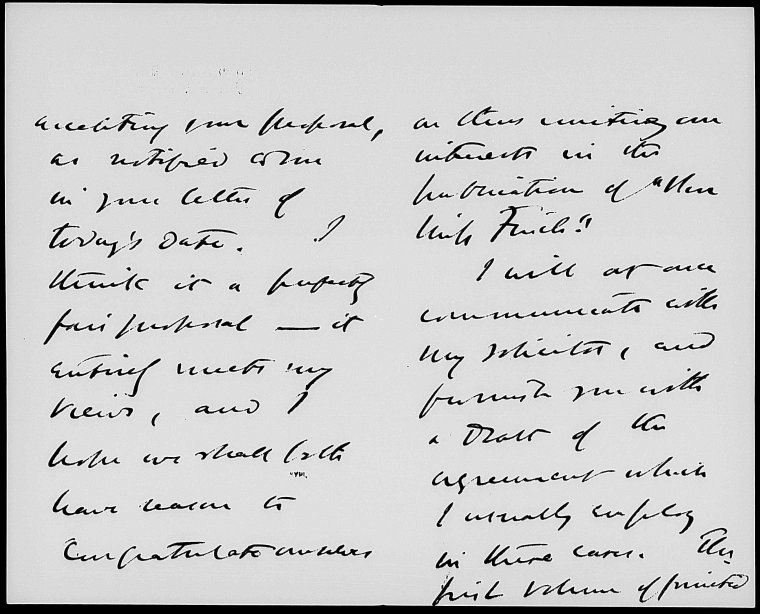 accepting your proposal,
as notified down
in your letter of
today's date. I
think it a perfectly
fair proposal — it
entirely meets my
views, and I
hope we shall both
have reason to
congratulate ourselves
on thus uniting our
interests in the
publication of "Poor
Miss Finch".
I will at once
communicate with
my solicitor, and
furnish you with
a Draft of the
agreement which
I usually employ
in these cases. The
first volume of printed